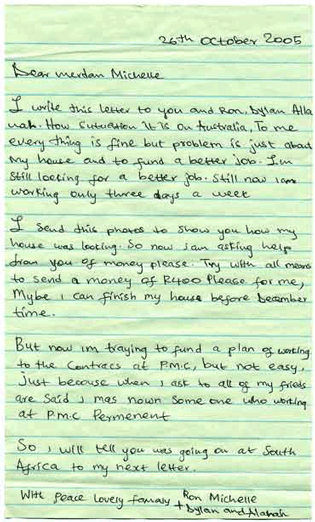 26th October 2005
Dear merdam Michelle
I write this letter to you and Ron, Dylan Alla
nah. How Sutuation It is on Australia, To me
every thing is fine but problem is just about
my house and to fund a better job. I.m
still looking for a better job. Still now I am
working only three days a week
I send this photos to show you how my
house was looking. So now I am asking help
from you of money please. Try with all means
to send a money of R400 Please for me,
Mybe I can finish my house before December
time.
But now im traying to fund a plan of working
to the Contracs at P.M.C, but not easy,
Just because when I ask to all of my frieds
are said I mas nown Some one who working
at P.M.C Permenent
So I will tell you was going on at South
Africa to my next letter.
With peace lovely famaly Ron Michelle
+ Dylan and Alanah